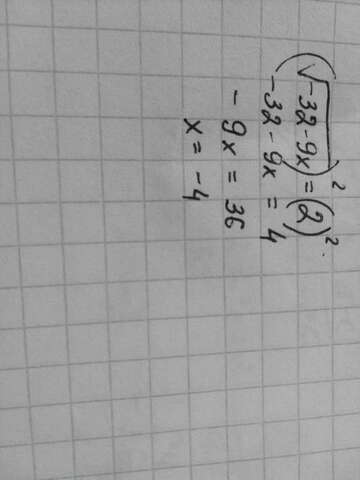 (√-32-9x)² = (2)².
-32-9x = 4
-9x = 36
x = -4